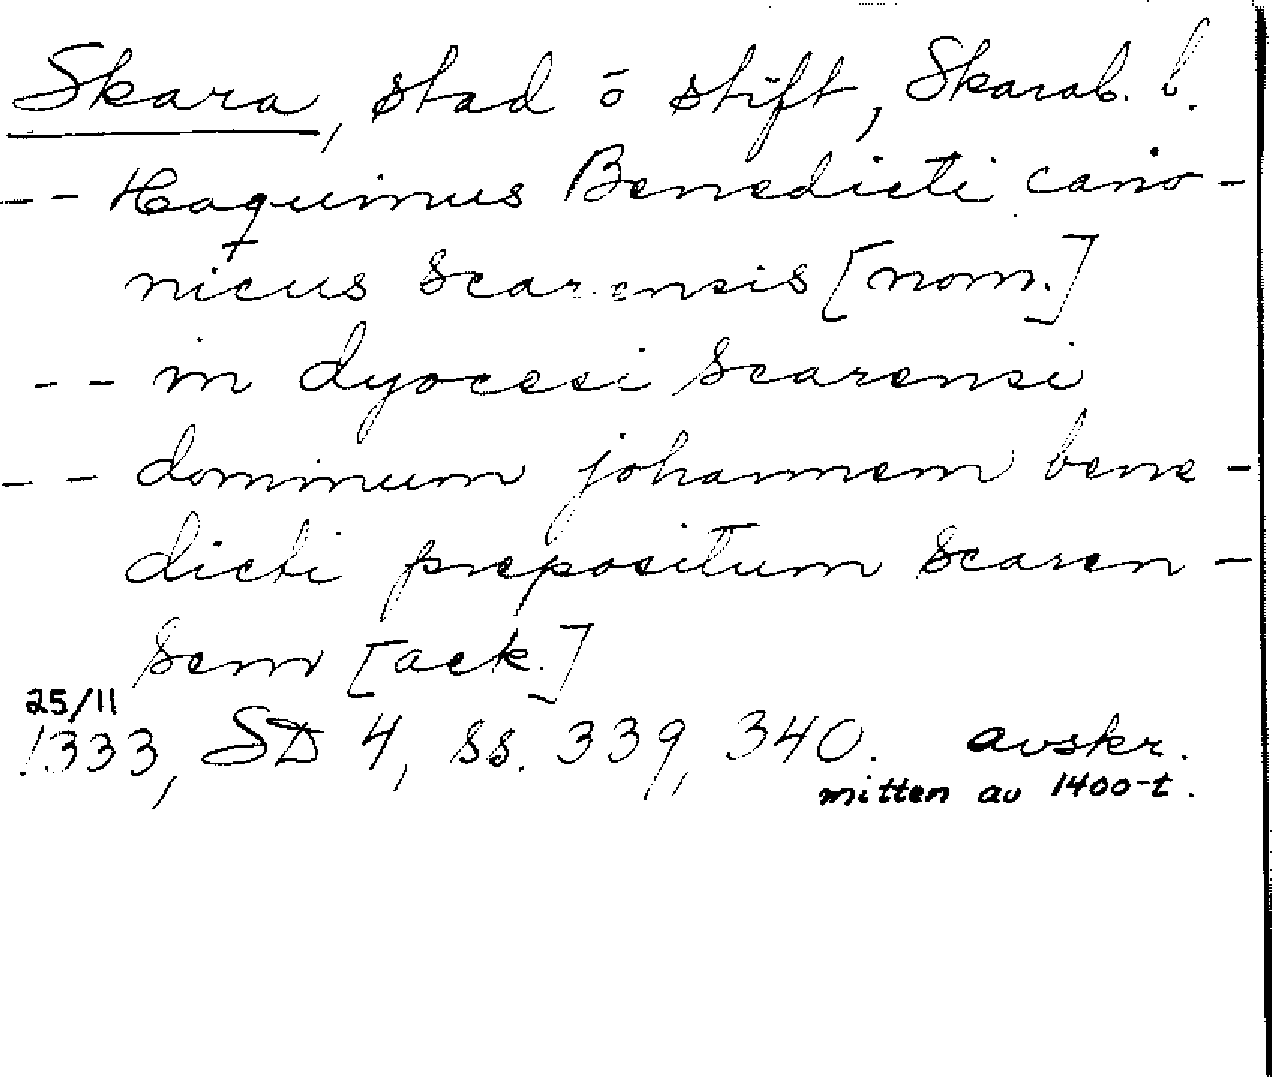 Skara, stad o stift, Skarab. l.
-- Haquinus Benedicti cano-
nicus Scarensis [nom.]
-- in dyocesi Scarensi
-- dominum johannem bene-
dicti prepositum Scaren-
sem [ack.]
25/11
1333, SD 4, ss. 339, 340. avskr.
mitten av 1400-t.